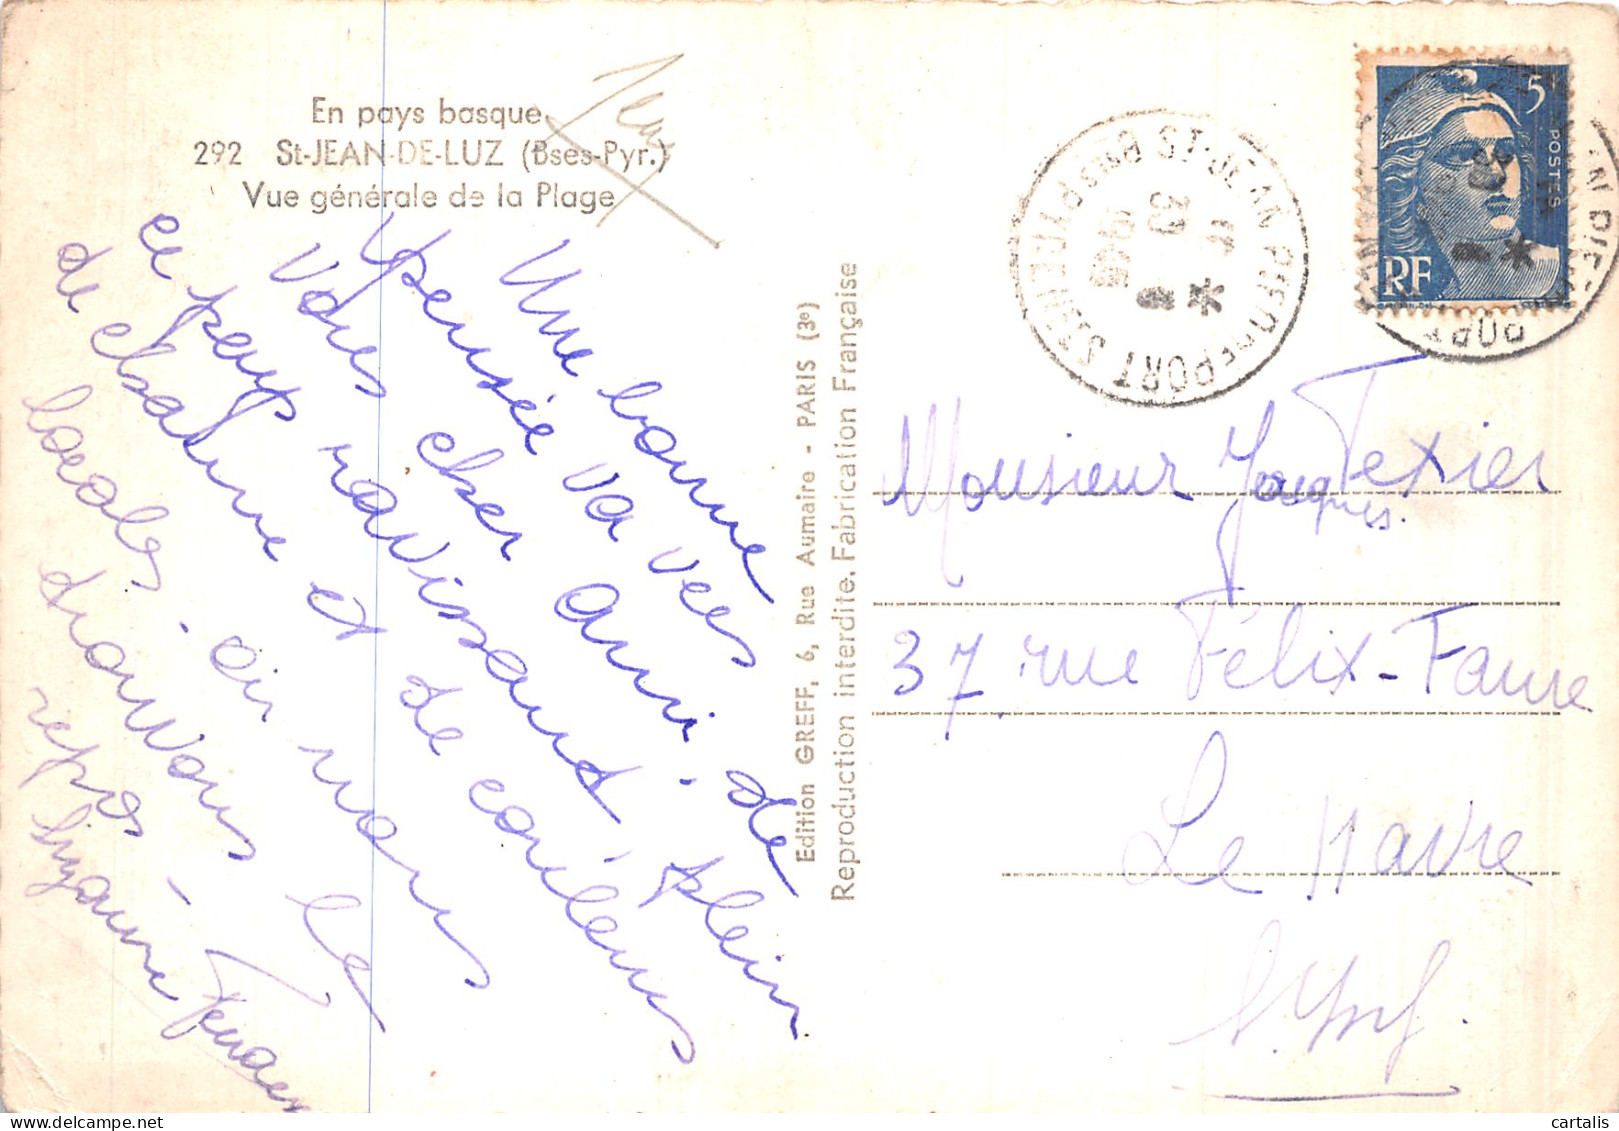 En pays basque
292 St-JEAN-DE-LUZ (Bses-Pyr.)
Vue générale de la Plage
Une bonne
pensée va vers
vous cher ami, de
ce pays ravissant plein
de charme et de couleurs
locales. où nous
trouvons le
repos -
Suzanne
Edition GREFF, 6, Rue Aumaire - PARIS (3e)
Reproduction interdite. Fabrication Française
ST-JEAN PIED DE PORT
5F
POSTES
RF
Monsieur Jacques Texier
37 rue Félix-Faure
Le Havre
S. Inf.
cartalis
www.delcampe.net